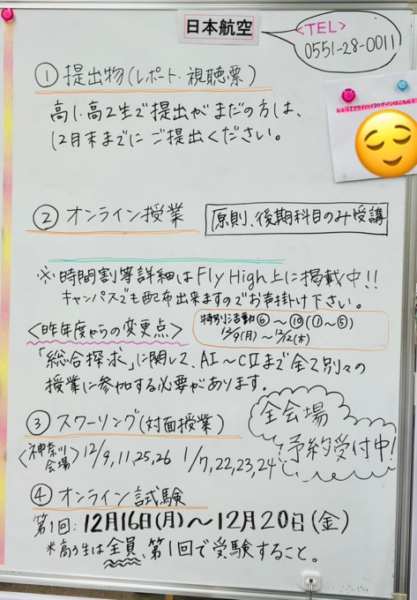 日本航空
<TEL>
0551-28-0011
① 提出物(レポート・視聴票)
高1・高2生で提出がまだの方は、
12月末までにご提出ください。
② オンライン授業
原則、後期科目のみ受講
※時間割等詳細はFly High上に掲載中!!
キャンパスでも配布出来ますのでお声掛け下さい。
<昨年度からの変更点>
特別活動⑥〜⑩(①〜⑤)
12/9(月)〜12/12(木)
「総合探求」に関して、AI〜CⅡまで全て別々の
授業に参加する必要があります。
③ スクーリング(対面授業)
全会場
予約受付中!
<神奈川会場> 12/9,11,25,26 1/7,22,23,24
④ オンライン試験
第1回:12月16日(月)〜12月20日(金)
*高3生は全員、第1回で受験すること。